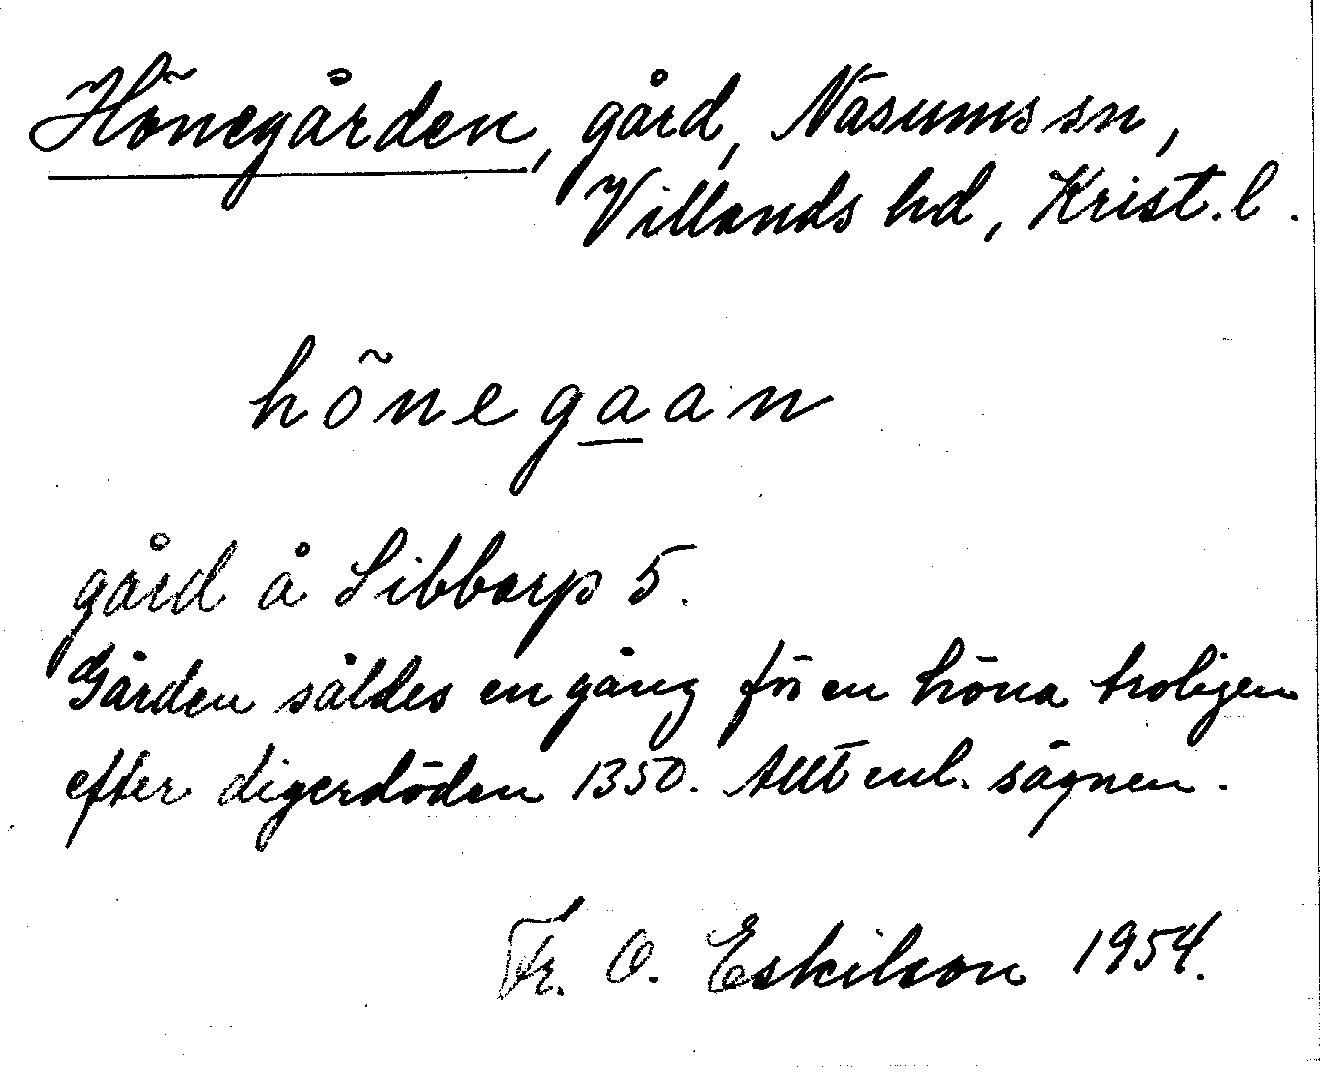 Hönegården, gård, Näsums sn,
Villands hd, Krist. l.
hönegaan
gård å Sibbarp 5.
Gården såldes en gång för en höna troligen
efter digerdöden 1350. Allt enl. sägnen.
Fr. O. Eskilson 1954.